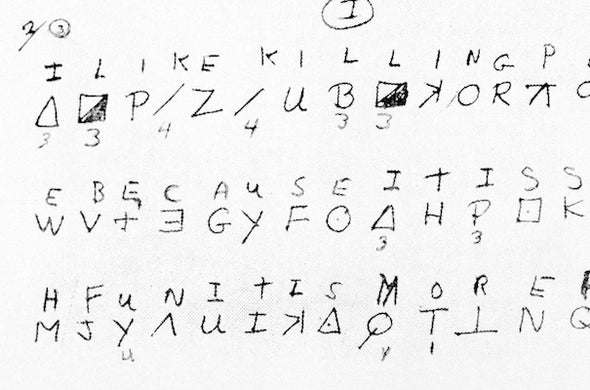 2/ ③ I
I L I K E K I L L I N G P
Δ ◪ P / Z / U B ◪ ꓘ O R ⊼
3 3 4 4 3 3
E B E C A U S E I T I S S
W V + Ǝ G Y F ⊙ Δ H P ⊡ K
3 3
H F U N I T I S M O R E
M J Y Λ U I ꓘ Δ Ϙ T ⊥ N Q